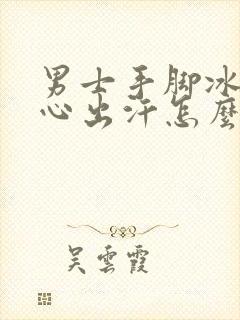 男士手脚冰
心出汗怎麼
吴雲霞